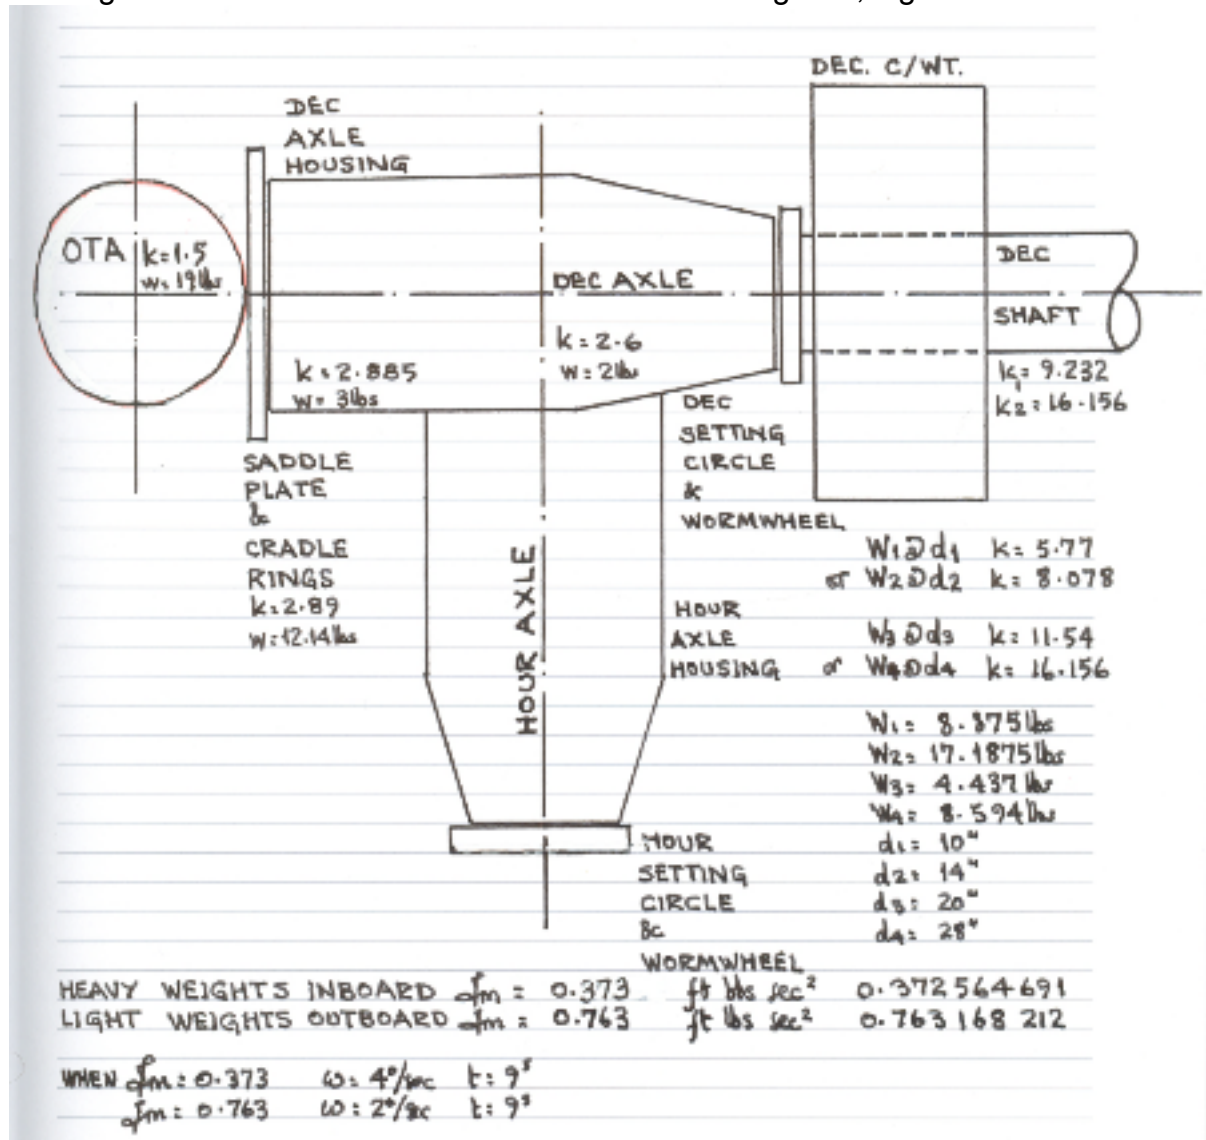 DEC. C/WT.
DEC
AXLE
HOUSING
OTA
k=1.5
w=19lbs
DEC AXLE
DEC
SHAFT
k=2.885
w=3lbs
k=2.6
w=2lbs
k1=9.232
k2=16.156
DEC
SETTING
CIRCLE
&
WORMWHEEL
SADDLE
PLATE
&
CRADLE
RINGS
k=2.89
w=12.14lbs
HOUR AXLE
HOUR
AXLE
HOUSING
W1@d1 k=5.77
or W2@d2 k=8.078
W3@d3 k=11.54
or W4@d4 k=16.156
W1= 8.375lbs
W2= 17.1875lbs
W3= 4.437lbs
W4= 8.594lbs
d1= 10"
d2= 14"
d3= 20"
d4= 28"
HOUR
SETTING
CIRCLE
&
WORMWHEEL
HEAVY WEIGHTS INBOARD Jm = 0.373 ft lbs sec² 0.372564691
LIGHT WEIGHTS OUTBOARD Jm = 0.763 ft lbs sec² 0.763168212
WHEN Jm=0.373 ω=4°/sec t=9s
Jm=0.763 ω=2°/sec t=9s